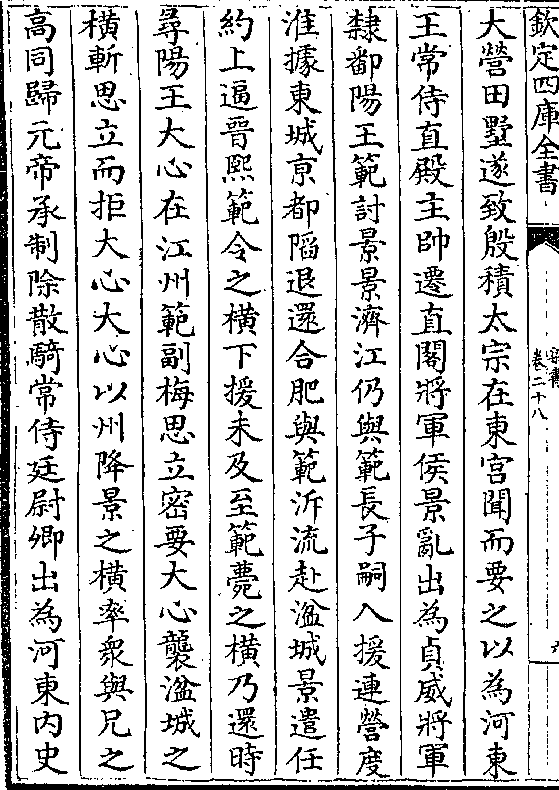 欽定四庫全書
梁書
卷二十八
六
大營田墅遂致殷積太宗在東宮聞而要之以為河東
王常侍直殿主帥遷直閣將軍侯景亂出為貞威將軍
隸鄱陽王範討景景濟江仍與範長子嗣入援連營度
淮據東城京都陷退還合肥與範泝流赴湓城景遣任
約上逼晉熙範令之橫下援未及至範薨之橫乃還時
尋陽王大心在江州範副梅思立密要大心襲湓城之
橫斬思立而拒大心大心以州降景之橫率衆與兄之
高同歸元帝承制除散騎常侍廷尉卿出為河東內史